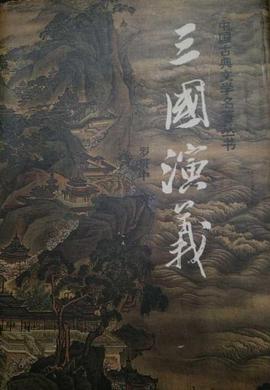 中国古典文学名著丛书
三國演義
罗贯中